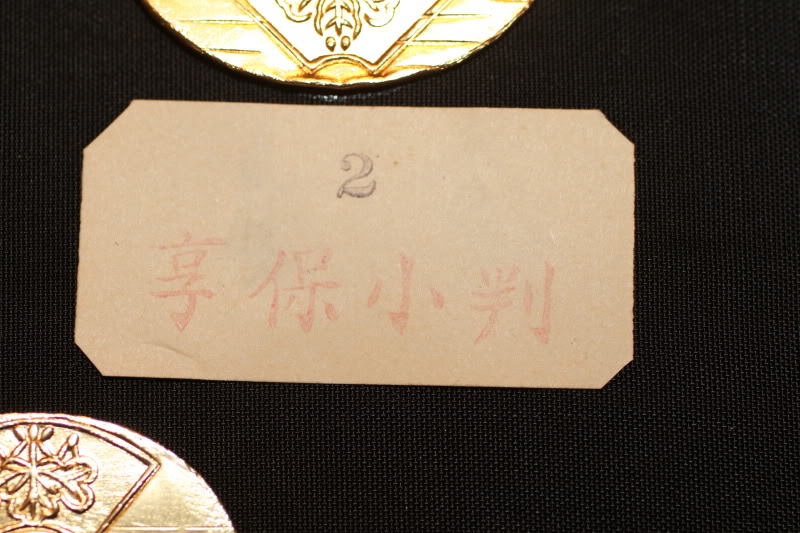 2
享保小判